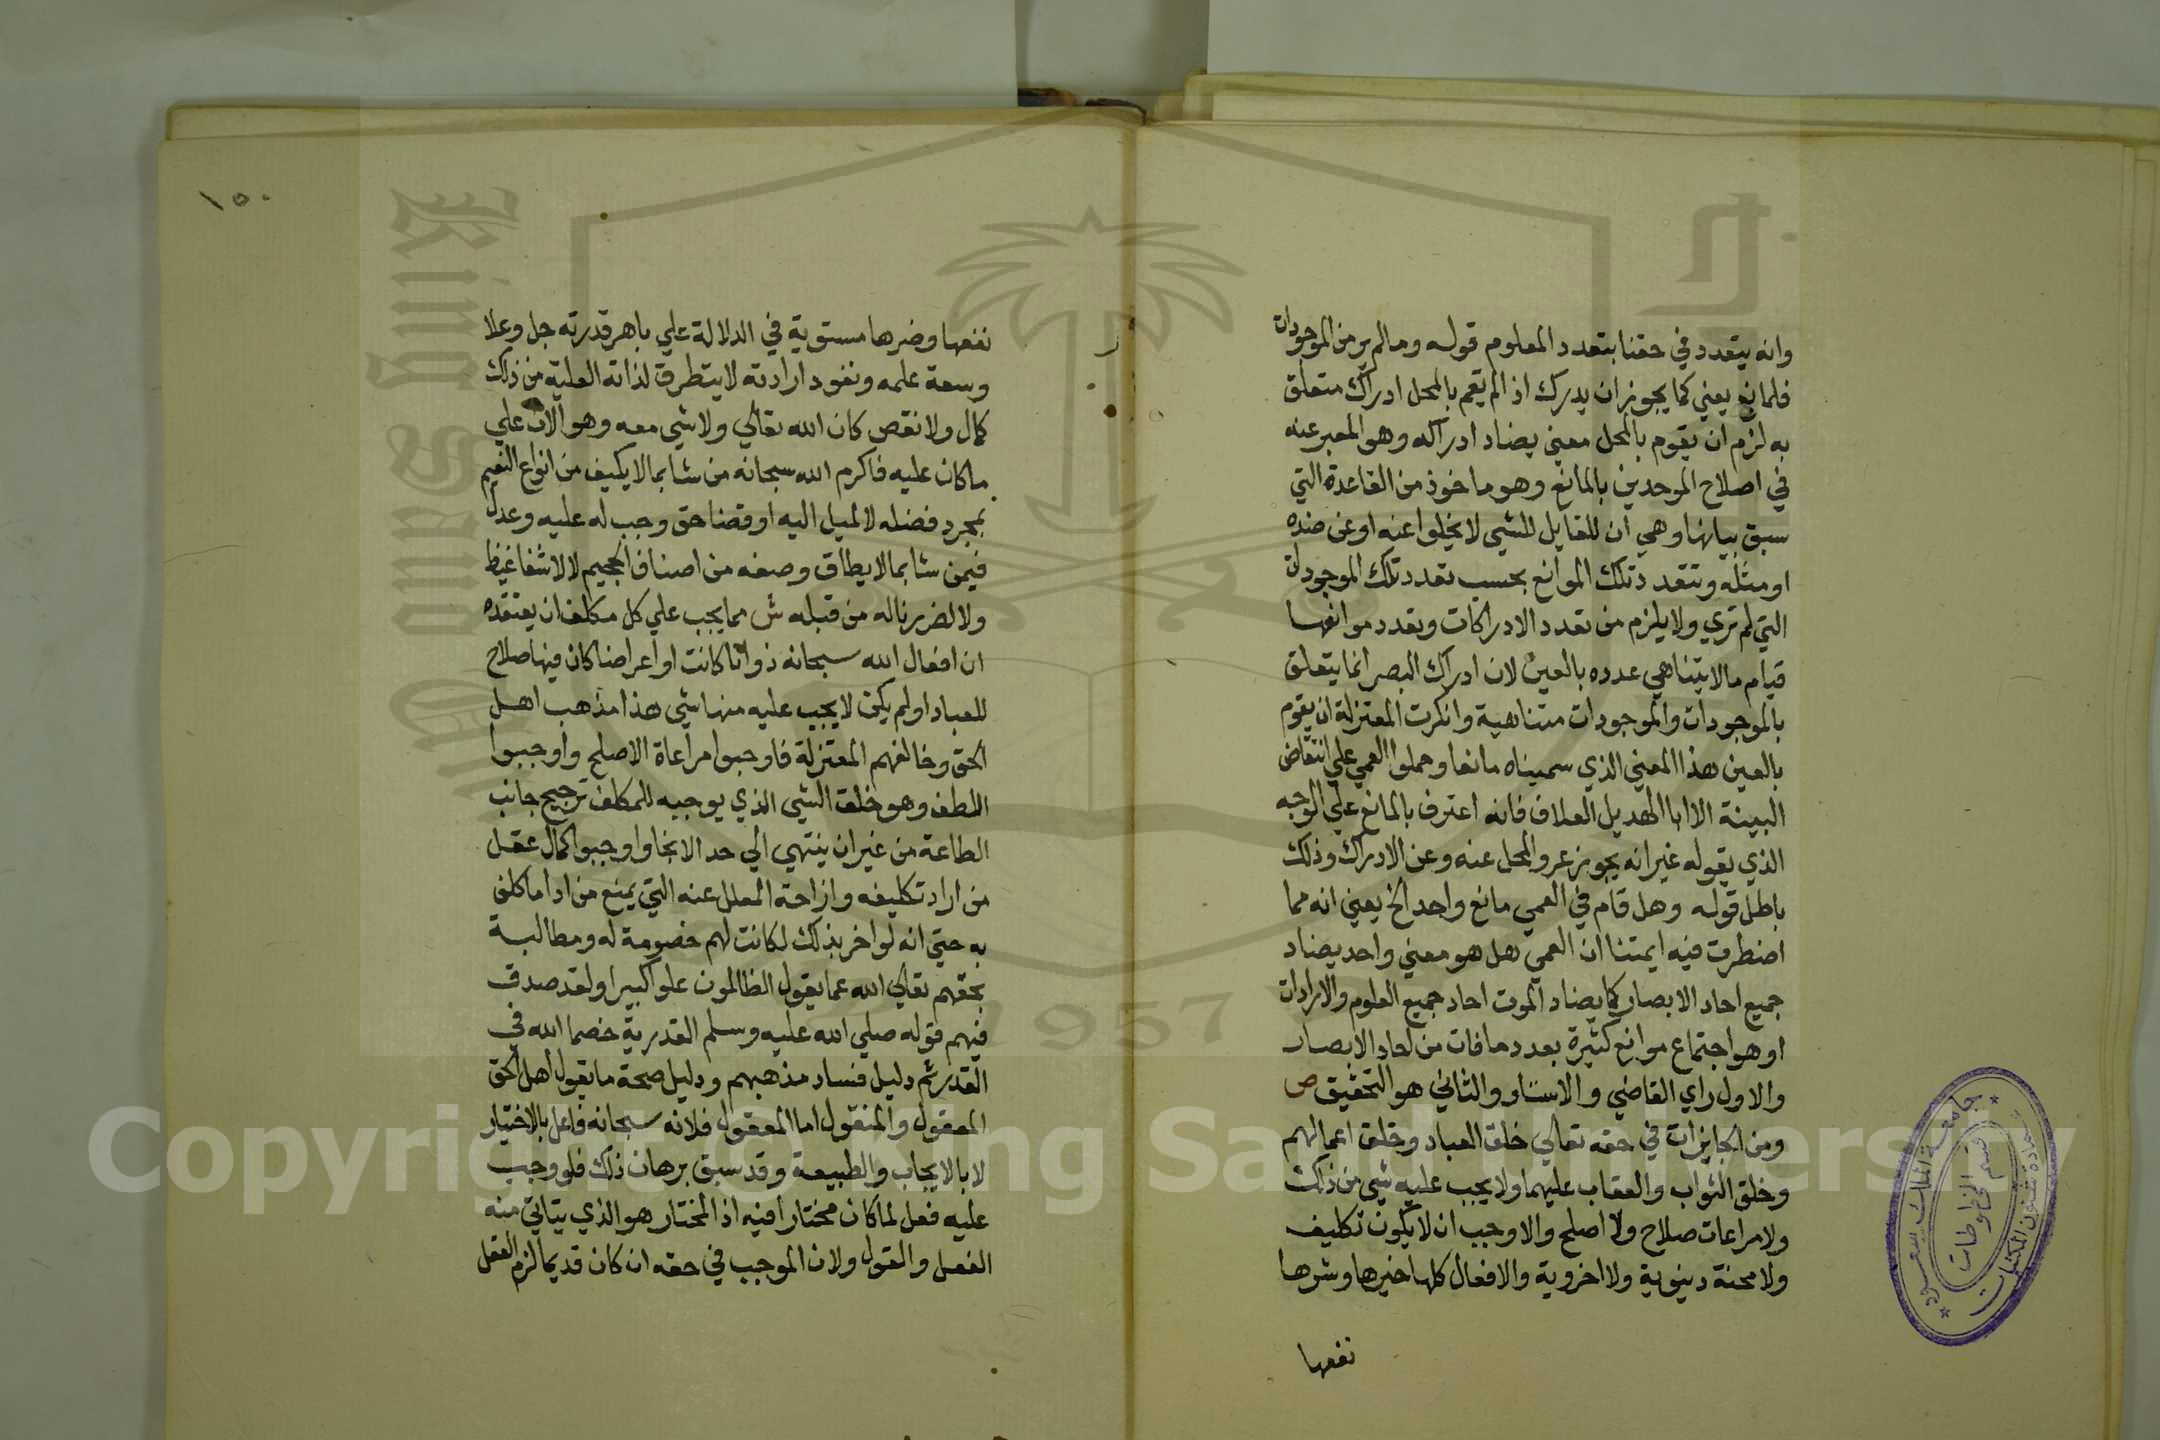 وانه يتعدد في حقنا بتعدد المعلوم قوله ومالم ير من الموجودات
فلمانع يعني كما يجوز ان يدرك اذ الم يقم بالمحل ادراك متعلق
به لزم ان يقوم بالمحل معني يضاد ادراكه وهو المعبر عنه
في اصلاح الموحدين بالمانع وهو ماخوذ من القاعدة التي
سبق بيانها وهي ان للقابل للشي لا يخلوا عنه او عن ضده
او مثله وتتعدد تلك الموانع بحسب تعدد تلك الموجودات
التي لم تري ولا يلزم من تعدد الادراكات وتعدد موانعها
قيام مالا يتناهي عدده بالعين لان ادراك البصر انما يتعلق
بالموجودات والموجودات متناهية وانكرت المعتزلة ان يقوم
بالعين هذا المعني الذي سميناه مانعا وحملوا العمي علي انتقاض
البينة الا ابا الهديل العلاف فانه اعترف بالمانع علي الوجه
الذي يقوله غير انه يجوز عرو المحل عنه وعن الادراك وذلك
باطل قوله وهل قام في العمي مانع واحد الخ يعني انه مما
اضطرت فيه ايمتنا ان العمي هل هو معني واحد يضاد
جميع احاد الابصار كما يضاد الموت احاد جميع العلوم والارادات
او هو اجتماع موانع كثيرة بعدد مافات من احاد الابصار
والاول راي القاضي والاستاد والثاني هو التحقيق ص
ومن الجايزات في حقه تعالي خلق العباد وخلق اعمالهم
وخلق الثواب والعقاب عليهما ولا يجب عليه شي من ذلك
ولا مراعات صلاح ولا اصلح والا وجب ان لا يكون تكليف
ولا محنة دينوية ولا اخروية والافعال كلها خيرها وشرها
نفعها
١٥٠
نفعها وضرها مستوية في الدلالة علي باهر قدرته جل وعلا
وسعة علمه ونفود ارادته لا يتطرق لذاته العلية من ذلك
كمال ولا نقص كان الله تعالي ولا شي معه وهو الان علي
ماكان عليه فاكرم الله سبحانه من شا بما لا يكيف من انواع النعيم
بمجرد فضله لا لميل اليه او قضا حق وجب له عليه وعدل
فيمن شا بما لا يطاق وصفه من اصناف الجحيم لا لاشفا غيظ
ولا لضرر ناله من قبله ش مما يجب علي كل مكلف ان يعتقده
ان افعال الله سبحانه ذواتا كانت او اعراضا كان فيها صلاح
للعباد او لم يكن لا يجب عليه منها شي هذا مذهب اهل
الحق وخالفهم المعتزلة فاوجبوا مراعاة الاصلح واوجبوا
اللطف وهو خلق الشي الذي يوجبه للمكلف ترجيح جانب
الطاعة من غير ان ينتهي الي حد الالجا واوجبوا كمال عقل
من اراد تكليفه وازاحة العلل عنه التي يمنع من ادا ما كلف
به حتي انه لو اخر بذلك لكانت لهم خصومة له ومطالبة
بحقهم تعالي الله عما يقول الظالمون علوا كبيرا ولقد صدق
فيهم قوله صلي الله عليه وسلم القدرية خصما الله في
القدر ثم دليل فساد مذهبهم ودليل صحة ما يقول اهل الحق
المعقول والمنقول اما المعقول فلانه سبحانه فاعل بالاختيار
لا بالايجاب والطبيعة وقد سبق برهان ذلك فلو وجب
عليه فعل لما كان مختارا فيه اذ المختار هو الذي يتاتي منه
الفعل والقول ولان الموجب في حقه ان كان قديما لزم الفعل
جامعة الملك سعود
عمادة شئون المكتبات
قسم المخطوطات
King Saud University
1957
Copyright © King Saud University